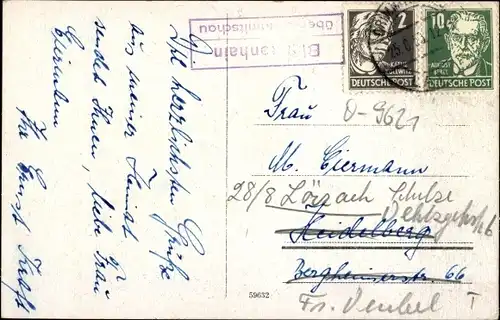 Die herzlichsten Grüße
aus meiner Heimat
sendet Ihnen, liebe Frau
Eiermann
Ihr Ernst Kraft
Blankenhain
über Crimmitschau
2
KÄTHE KOLLWITZ
DEUTSCHE POST
10
AUGUST BEBEL
DEUTSCHE POST
Frau
O-9621
M. Eiermann
28/8 Lörrach Schulze
Delitzschstr. 6
Heidelberg
Bergheimerstr. 66
Fr. Denbel
T
59632